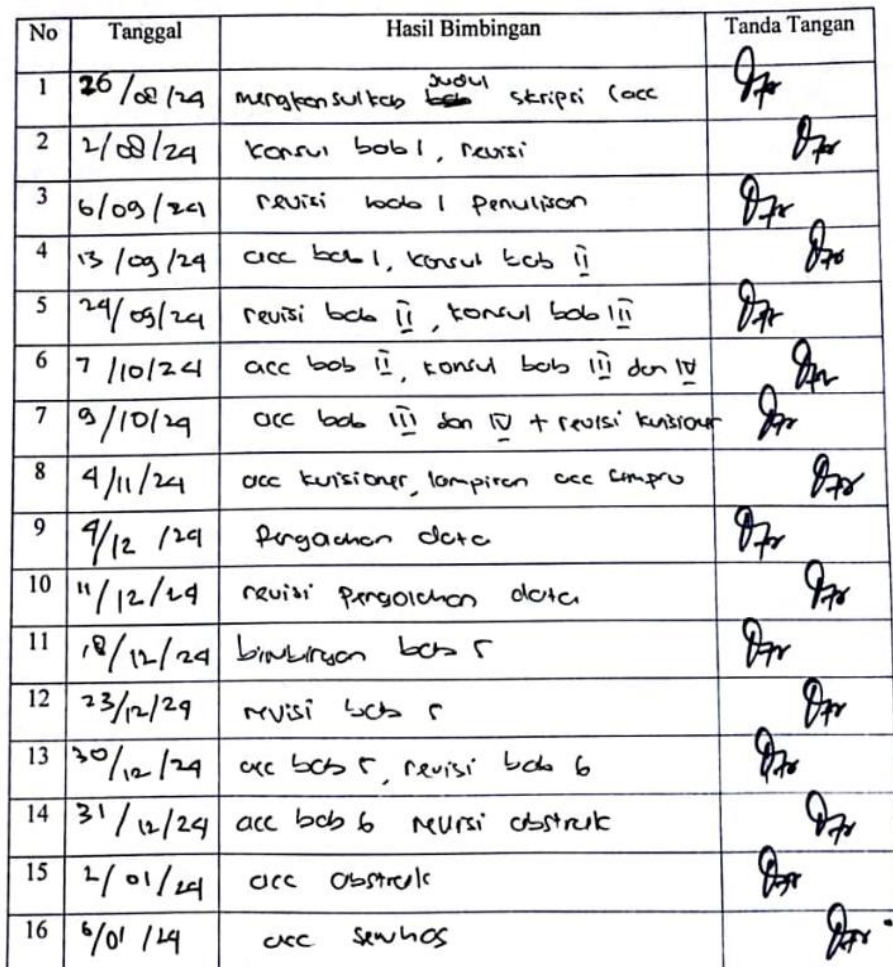 No Tanggal Hasil Bimbingan Tanda Tangan
1 26/08/24 mengkonsulkab judul skripsi (acc
2 2/08/24 konsul bab 1, revisi
3 6/09/24 revisi bab 1 penulisan
4 13/09/24 acc bab 1, konsul bab II
5 24/09/24 revisi bab II, konsul bab III
6 7/10/24 acc bab II, konsul bab III dan IV
7 9/10/24 acc bab III dan IV + revisi kuisioner
8 4/11/24 acc kuisioner, lampiran acc sempro
9 4/12/24 Pengolahan data
10 11/12/24 revisi pengolahan data
11 18/12/24 bimbingan bab 5
12 23/12/24 revisi bab 5
13 30/12/24 acc bab 5, revisi bab 6
14 31/12/24 acc bab 6 revisi abstrak
15 2/01/24 acc abstrak
16 6/01/24 acc semhas